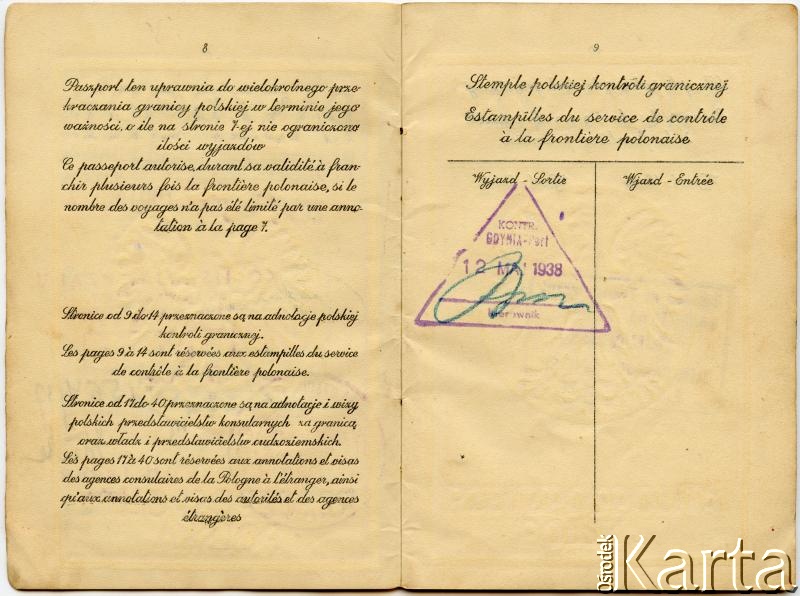 8
Paszport ten uprawnia do wielokrotnego prze-
kraczania granicy polskiej w terminie jego
ważności, o ile na stronie 7-ej nie ograniczono
ilości wyjazdów
Ce passeport autorise, durant sa validité à fran-
chir plusieurs fois la frontière polonaise, si le
nombre des voyages n'a pas été limité par une anno-
tation à la page 7.
Stronice od 9 do 14 przeznaczone są na adnotacje polskiej
kontroli granicznej.
Les pages 9 à 14 sont réservées aux estampilles du service
de contrôle à la frontière polonaise.
Stronice od 17 do 40 przeznaczone są na adnotacje i wizy
polskich przedstawicielstw konsularnych za granicą,
oraz władz i przedstawicielstw cudzoziemskich.
Les pages 17 à 40 sont réservées aux annotations et visas
des agences consulaires de la Pologne à l'étranger, ainsi
qu'aux annotations et visas des autorités et des agences
étrangères
9
Stemple polskiej kontroli granicznej
Estampilles du service de contrôle
à la frontière polonaise
Wyjazd - Sortie
Wjazd - Entrée
KONTR.
GDYNIA-Port
12 MAJ 1938
Kierownik
Ośrodek
Karta